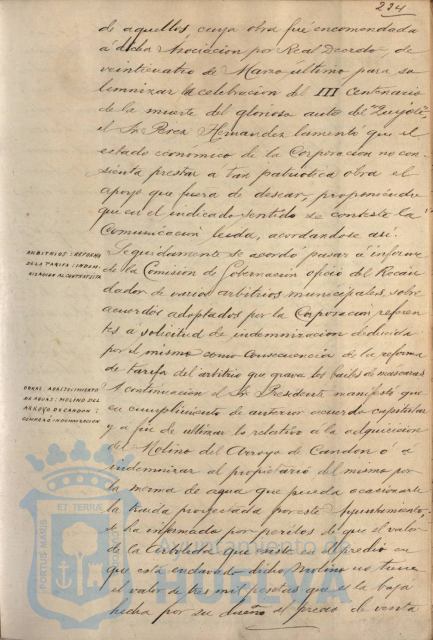 234
de aquellos, cuya obra fué encomendada
á dicha Asociacion por Real Decreto, de
veinticuatro de Marzo último para so
lemnizar la celebracion del III Centenario
de la muerte del glorioso autor del "Quijote",
el Sr. Perez Hernandez lamentó que el
estado económico de la Corporacion no con
sienta prestar á tan patriotica obra el
apoyo que fuera de desear, proponiendo
que en el indicado sentido se conteste la
Comunicacion leida, acordandose así.
ARBITRIOS: REFORMA
DE LA TARIFA: INDEM-
NIZACION AL CONTRATISTA
Seguidamente se acordó pasar á informe
de la Comision de Gobernacion oficio del Recau
dador de varios arbitrios municipales, sobre
acuerdos adoptados por la Corporacion referen
tes a solicitud de indemnizacion deducida
por el mismo como consecuencia de la reforma
de tarifa del arbitrio que grava los bailes de mascaras
OBRAS ABASTECIMIENTO
DE AGUAS: MOLINO DEL
ARROYO DE CANDON:
COMPRA O INDEMNIZACION
A continuacion el Sr. Presidente manifestó que
en cumplimiento de anterior acuerdo capitular
y a fin de ultimar lo relativo á la adquisicion
del Molino del Arroyo de Candon ó a
indemnizar al propietario del mismo por
la merma de agua que pueda ocasionarle
la traida proyectada por este Ayuntamiento,
se ha informado por peritos de que el valor
de la arboleda que existe en el predio en
que está enclavado dicho Molino no tiene
el valor de tres mil pesetas que es la baja
hecha por su dueño al precio de venta
Ayuntamiento de
HUELVA
PORTUS MARIS
ET TERRAE